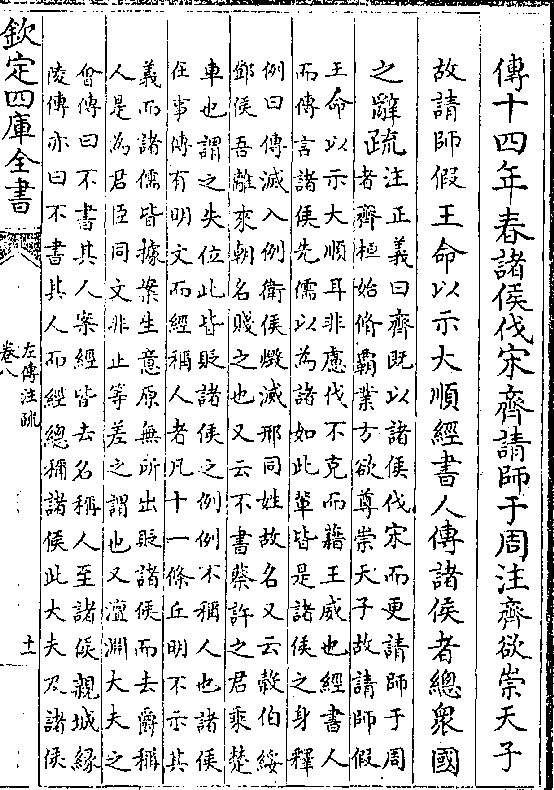 傳十四年春諸侯伐宋齊請師于周注齊欲崇天子
故請師假王命以示大順經書人傳諸侯者總衆國
之辭疏
注正義曰齊既以諸侯伐宋而更請師于周
者齊桓始脩霸業方欲尊崇天子故請師假
王命以示大順耳非慮伐不克而藉王威也經書人
而傳言諸侯先儒以為諸如此輩皆是諸侯之身釋
例曰傳滅入例衛侯燬滅邢同姓故名又云穀伯綏
鄧侯吾離來朝名賤之也又云不書蔡許之君乘楚
車也謂之失位此皆貶諸侯之例例不稱人也諸侯
在事傳有明文而經稱人者凡十一條丘明不示其
義而諸儒皆據案生意原無所出貶諸侯而去爵稱
人是為君臣同文非止等差之謂也又澶淵大夫之
會傳曰不書其人案經皆去名稱人至諸侯親城緣
陵傳亦曰不書其人而經總稱諸侯此大夫及諸侯
欽定四庫全書
左傳注疏
卷八
十一